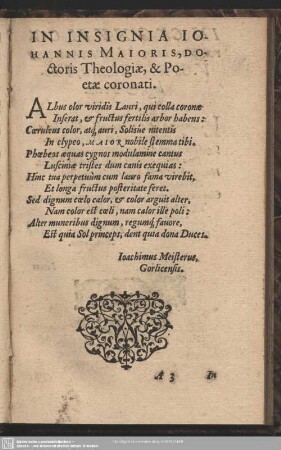 IN INSIGNIA IO-
HANNIS MAIORIS, DO-
ctoris Theologiæ, & Po-
etæ coronati.
ALbus olor viridis Lauri, qui colla coronæ
Inserat, & fructus fertilis arbor habens:
Cœruleus color, atq́; auri, Solisq́ue nitentis
In clypeo, MAIOR, nobile stemma tibi.
Phœbeos æquas cygnos modulamine cantus
Lusciniæ tristes dum canis exequias:
Hinc tua perpetuùm cum lauro fama virebit,
Et longa fructus posteritate feret.
Sed dignum cœlo calor, & color arguit alter,
Nam color est cœli, nam calor ille poli:
Alter muneribus dignum, regumq́; fauore,
Est quia Sol princeps, dent quia dona Duces.
Ioachimus Meisterus.
Gorlicensis.
A 3
In